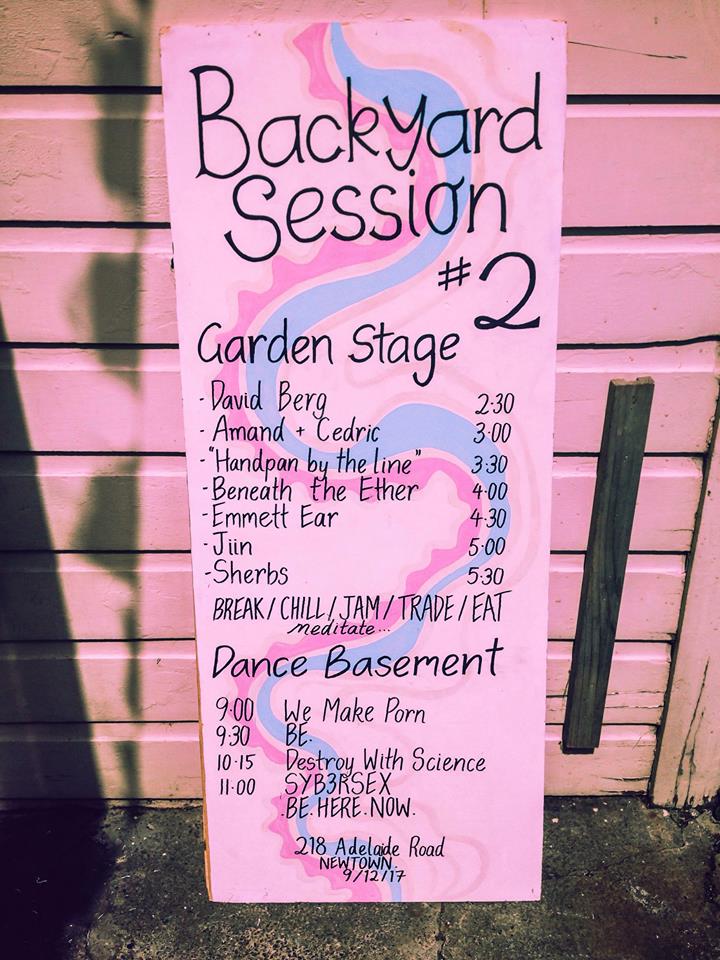 Backyard
Session
#2
Garden Stage
- David Berg 2·30
- Amand + Cedric 3·00
- "Handpan by the line" 3·30
- Beneath the Ether 4·00
- Emmett Ear 4·30
- Jiin 5·00
- Sherbs 5·30
BREAK / CHILL / JAM / TRADE / EAT
meditate...
Dance Basement
9·00 We Make Porn
9·30 BE.
10·15 Destroy With Science
11·00 SYB3RSEX
.BE.HERE.NOW.
218 Adelaide Road
NEWTOWN.
9/12/17